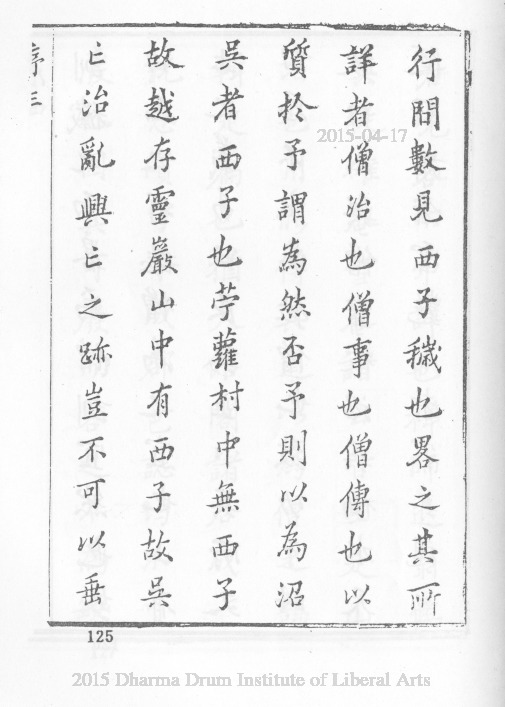 行問數見西子穢也畧之其所
詳者僧治也僧事也僧傳也以
質於予謂為然否予則以為沼
吳者西子也苧蘿村中無西子
故越存靈巖山中有西子故吳
亡治亂興亡之跡豈不可以垂
序三
125
2015-04-17
2015 Dharma Drum Institute of Liberal Arts